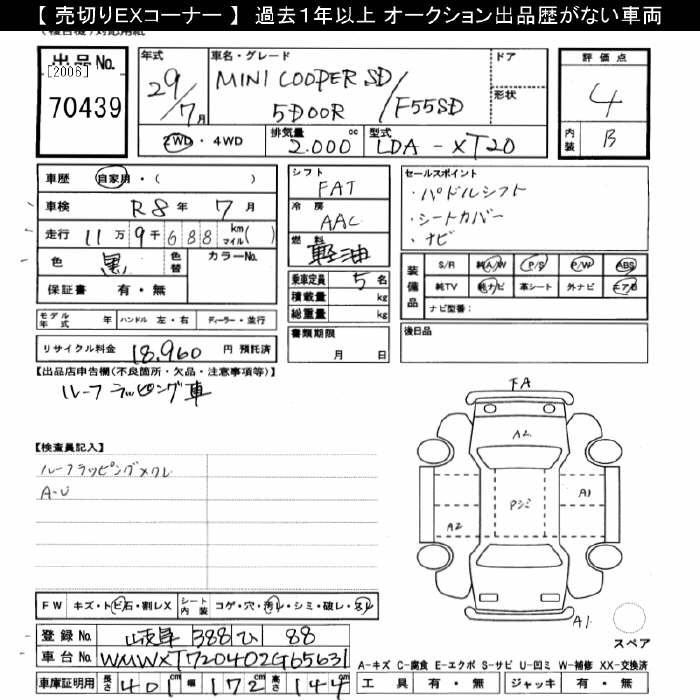 【 売切りEXコーナー 】 過去1年以上 オークション出品歴がない車両
出品No. [2006] 70439
年式 29/7月
車名・グレード MINI COOPER SD/
5DOOR /F55SD
ドア
形状
2WD・4WD 排気量 2.000 cc 型式 LDA-XT20
評価点 4
内装 B
車歴 自家用・( )
車検 R8年 7月
走行 11万9千688 km マイル( )
色 黒 色替 カラーNo.
保証書 有・無
モデル年式 年 ハンドル 左・右 ディーラー・並行
リサイクル料金 18.960 円 預託済
シフト FAT
冷房 AAC
燃料 軽油
乗車定員 5名
積載量 kg
総重量 kg
書類期限 月 日
セールスポイント
・パドルシフト
・シートカバー
・ナビ
装備品 S/R 純A/W P/S P/W ABS
純TV 純ナビ 革シート 外ナビ エアB
ナビ型番:
後日品
【出品店申告欄(不良箇所・欠品・注意事項等)】
ルーフラッピング車
【検査員記入】
ルーフラッピングメクレ
A-U
FA
A2
Pシミ
A1
A2
A1
スペア
FW キズ・トビ石・割レX シート内装 コゲ・穴・汚レ・シミ・破レ・スレ
登録No. 岐阜 388 ひ 88
車台No. WMWXT720402G65631
車庫証明用 長さ 401cm 幅 172cm 高さ 144cm
A-キズ C-腐食 E-エクボ S-サビ U-凹ミ W-補修 XX-交換済
工具 有・無 ジャッキ 有・無